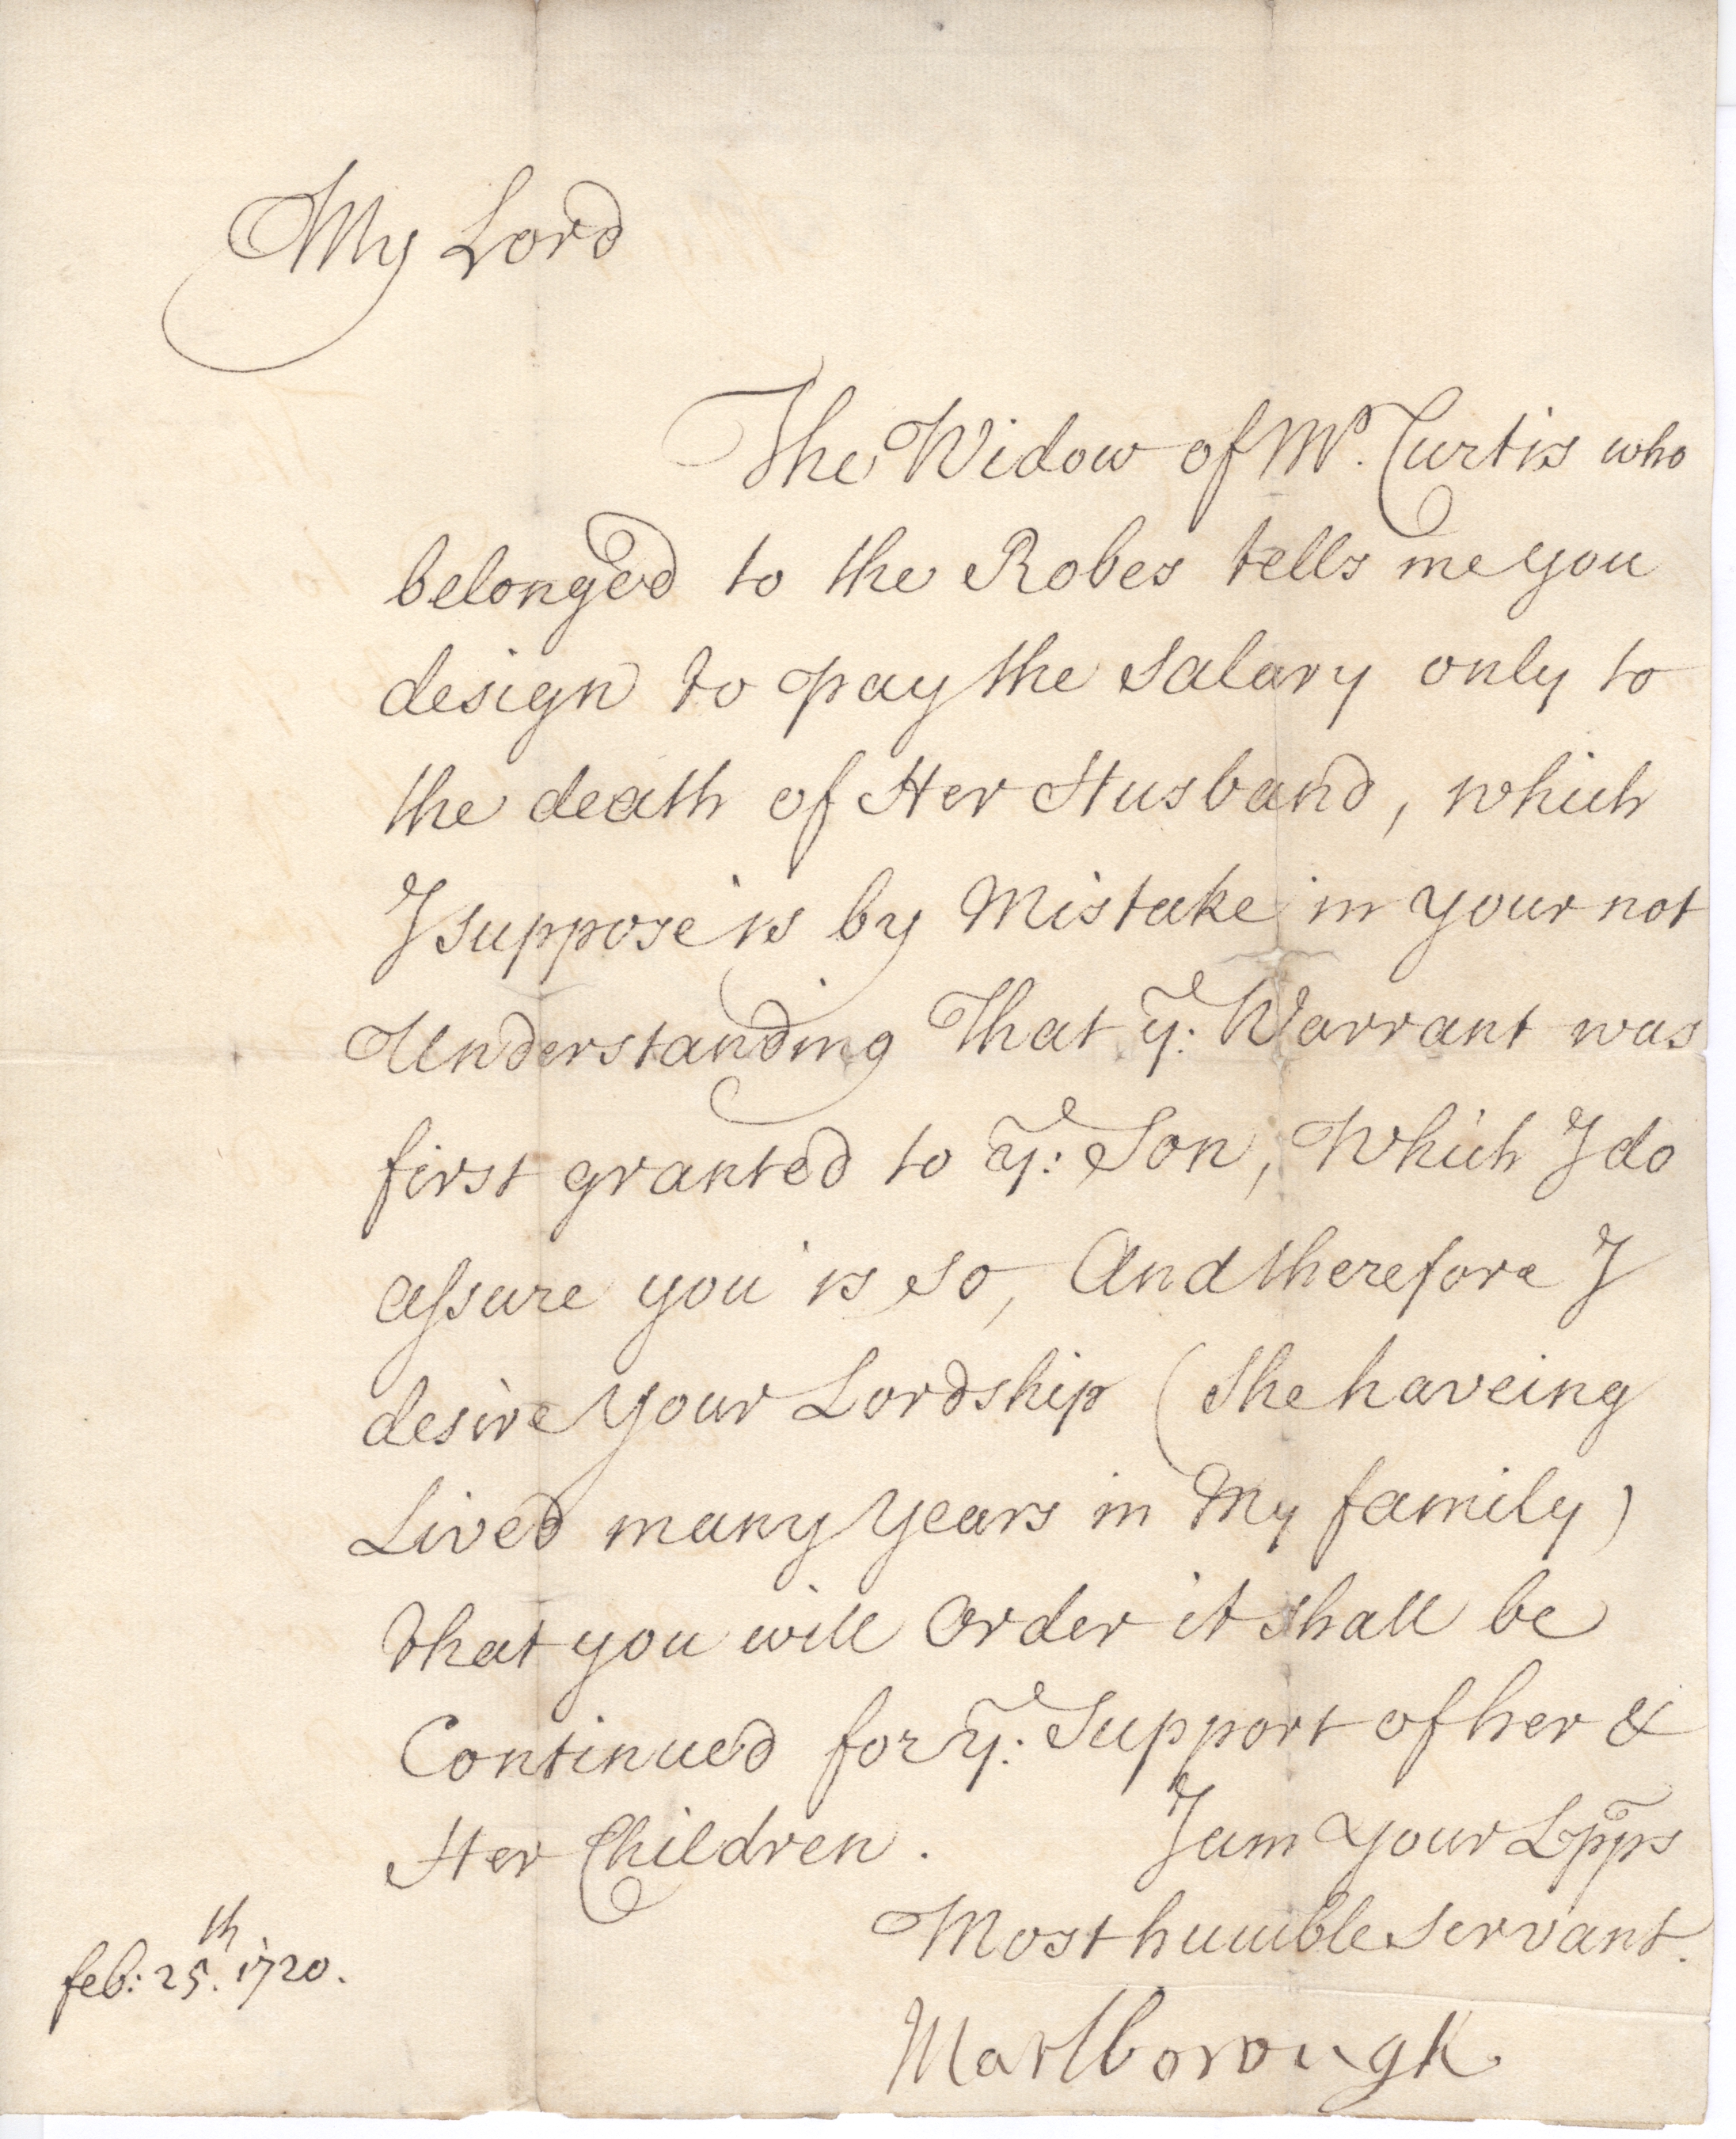 My Lord
The Widow of Mr. Curtis who
belonged to the Robes tells me you
design to pay the Salary only to
the death of Her Husband, which
I suppose is by Mistake in your not
Understanding That ye: Warrant was
first granted to ye: Son, Which I do
assure you is so, And therefore I
desire your Lordship (She haveing
Lived many years in My family)
that you will Order it shall be
Continued for ye: Support of her &
Her Children. I am your Lpps
Most humble servant.
feb: 25th. 1720.
Marlborough.